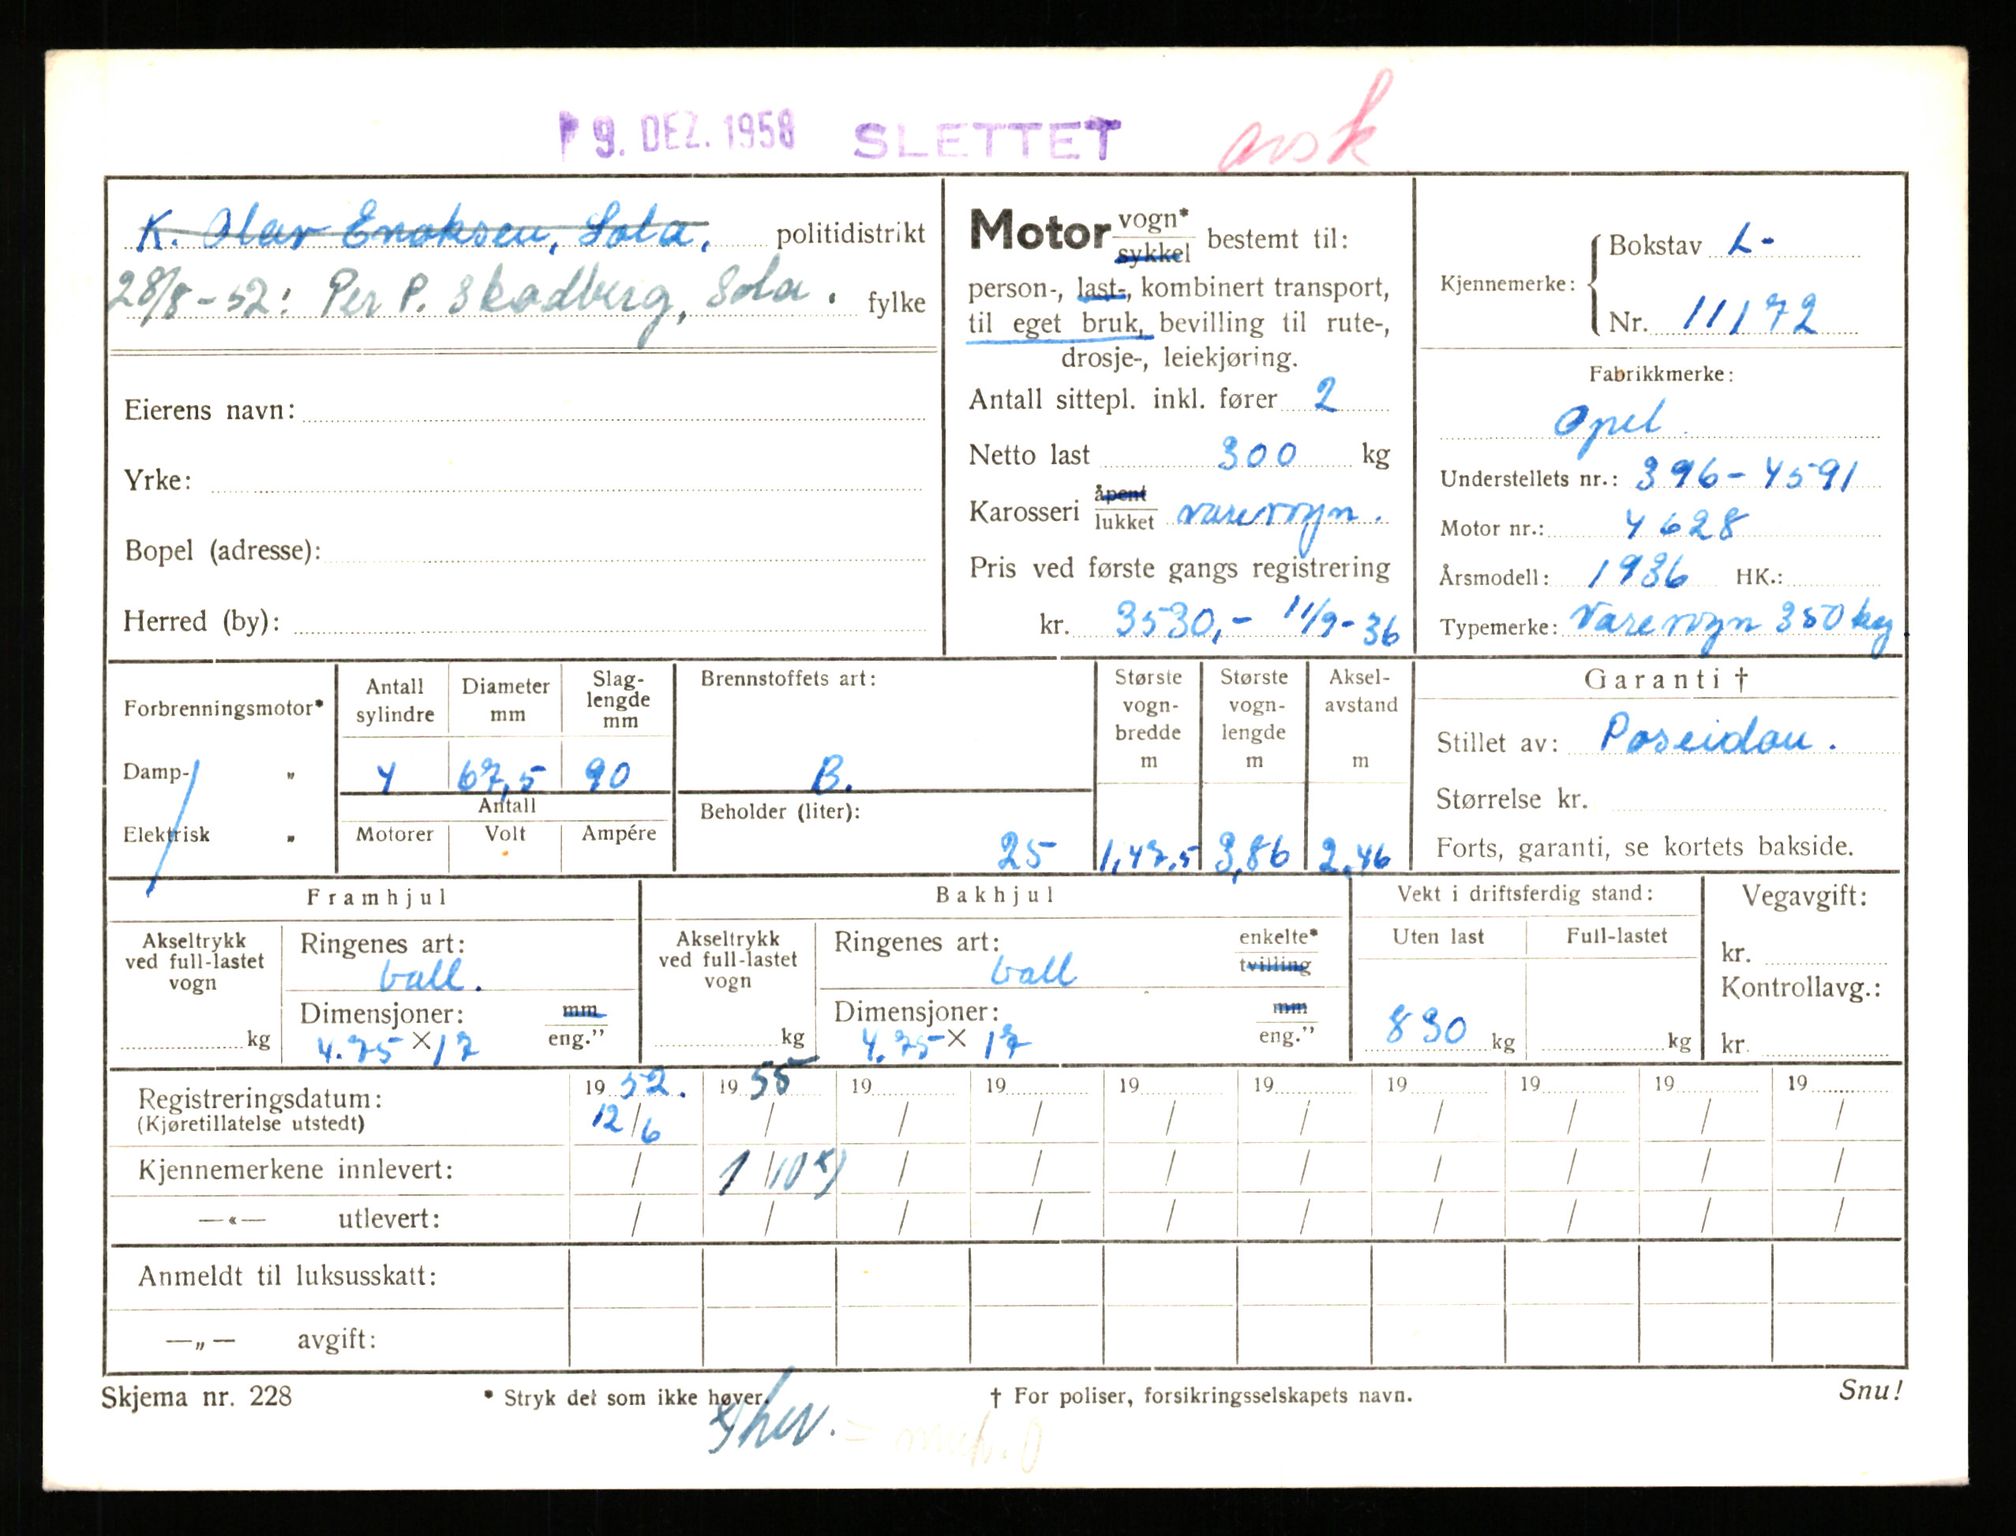 9. DEZ. 1958 SLETTET avsk
K. Olav Enoksen, Sola, politidistrikt
28/8-52: Per P. Skadberg, Sola. fylke
Eierens navn:
Yrke:
Bopel (adresse):
Herred (by):
Motor vogn* sykkel bestemt til:
person-, last-, kombinert transport,
til eget bruk, bevilling til rute-,
drosje-, leiekjøring.
Antall sittepl. inkl. fører 2
Netto last 300 kg
Karosseri åpent lukket varevogn.
Pris ved første gangs registrering
kr. 3530,- 11/9-36
Kjennemerke: Bokstav L-
Nr. 11172
Fabrikkmerke:
Opel
Understellets nr.: 396-4591
Motor nr.: 4628
Årsmodell: 1936 HK.:
Typemerke: Varevogn 350 kg
Forbrenningsmotor*
Damp- „
Elektrisk „
Antall sylindre Diameter mm Slag-lengde mm
4 67,5 90
Antall
Motorer Volt Ampére
Brennstoffets art:
B.
Beholder (liter):
25
Største vogn-bredde m Største vogn-lengde m Aksel-avstand m
1,47,5 3,86 2,46
Garanti †
Stillet av: Poseidon.
Størrelse kr.
Forts, garanti, se kortets bakside.
Framhjul
Akseltrykk ved full-lastet vogn
kg
Ringenes art:
ball.
Dimensjoner: mm eng."
4.75 × 17
Bakhjul
Akseltrykk ved full-lastet vogn
kg
Ringenes art: enkelte* tvilling
ball
Dimensjoner: mm eng."
4.75 × 17
Vekt i driftsferdig stand:
Uten last Full-lastet
830 kg kg
Vegavgift:
kr.
Kontrollavg.:
kr.
19 52. 19 55 19 19 19 19 19 19 19 19
Registreringsdatum:
(Kjøretillatelse utstedt)
12/6 / / / / / / / / /
Kjennemerkene innlevert: / 1/10 x) / / / / / / / /
—«— utlevert: / / / / / / / / / /
Anmeldt til luksusskatt:
—„— avgift:
Skjema nr. 228 * Stryk det som ikke høver. † For poliser, forsikringsselskapets navn. Snu!